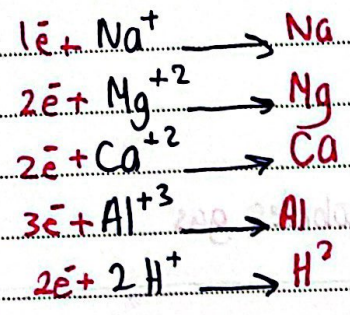 1e⁻ + Na⁺ → Na
2e⁻ + Mg⁺² → Mg
2e⁻ + Ca⁺² → Ca
3e⁻ + Al⁺³ → Al
2e⁻ + 2H⁺ → H²